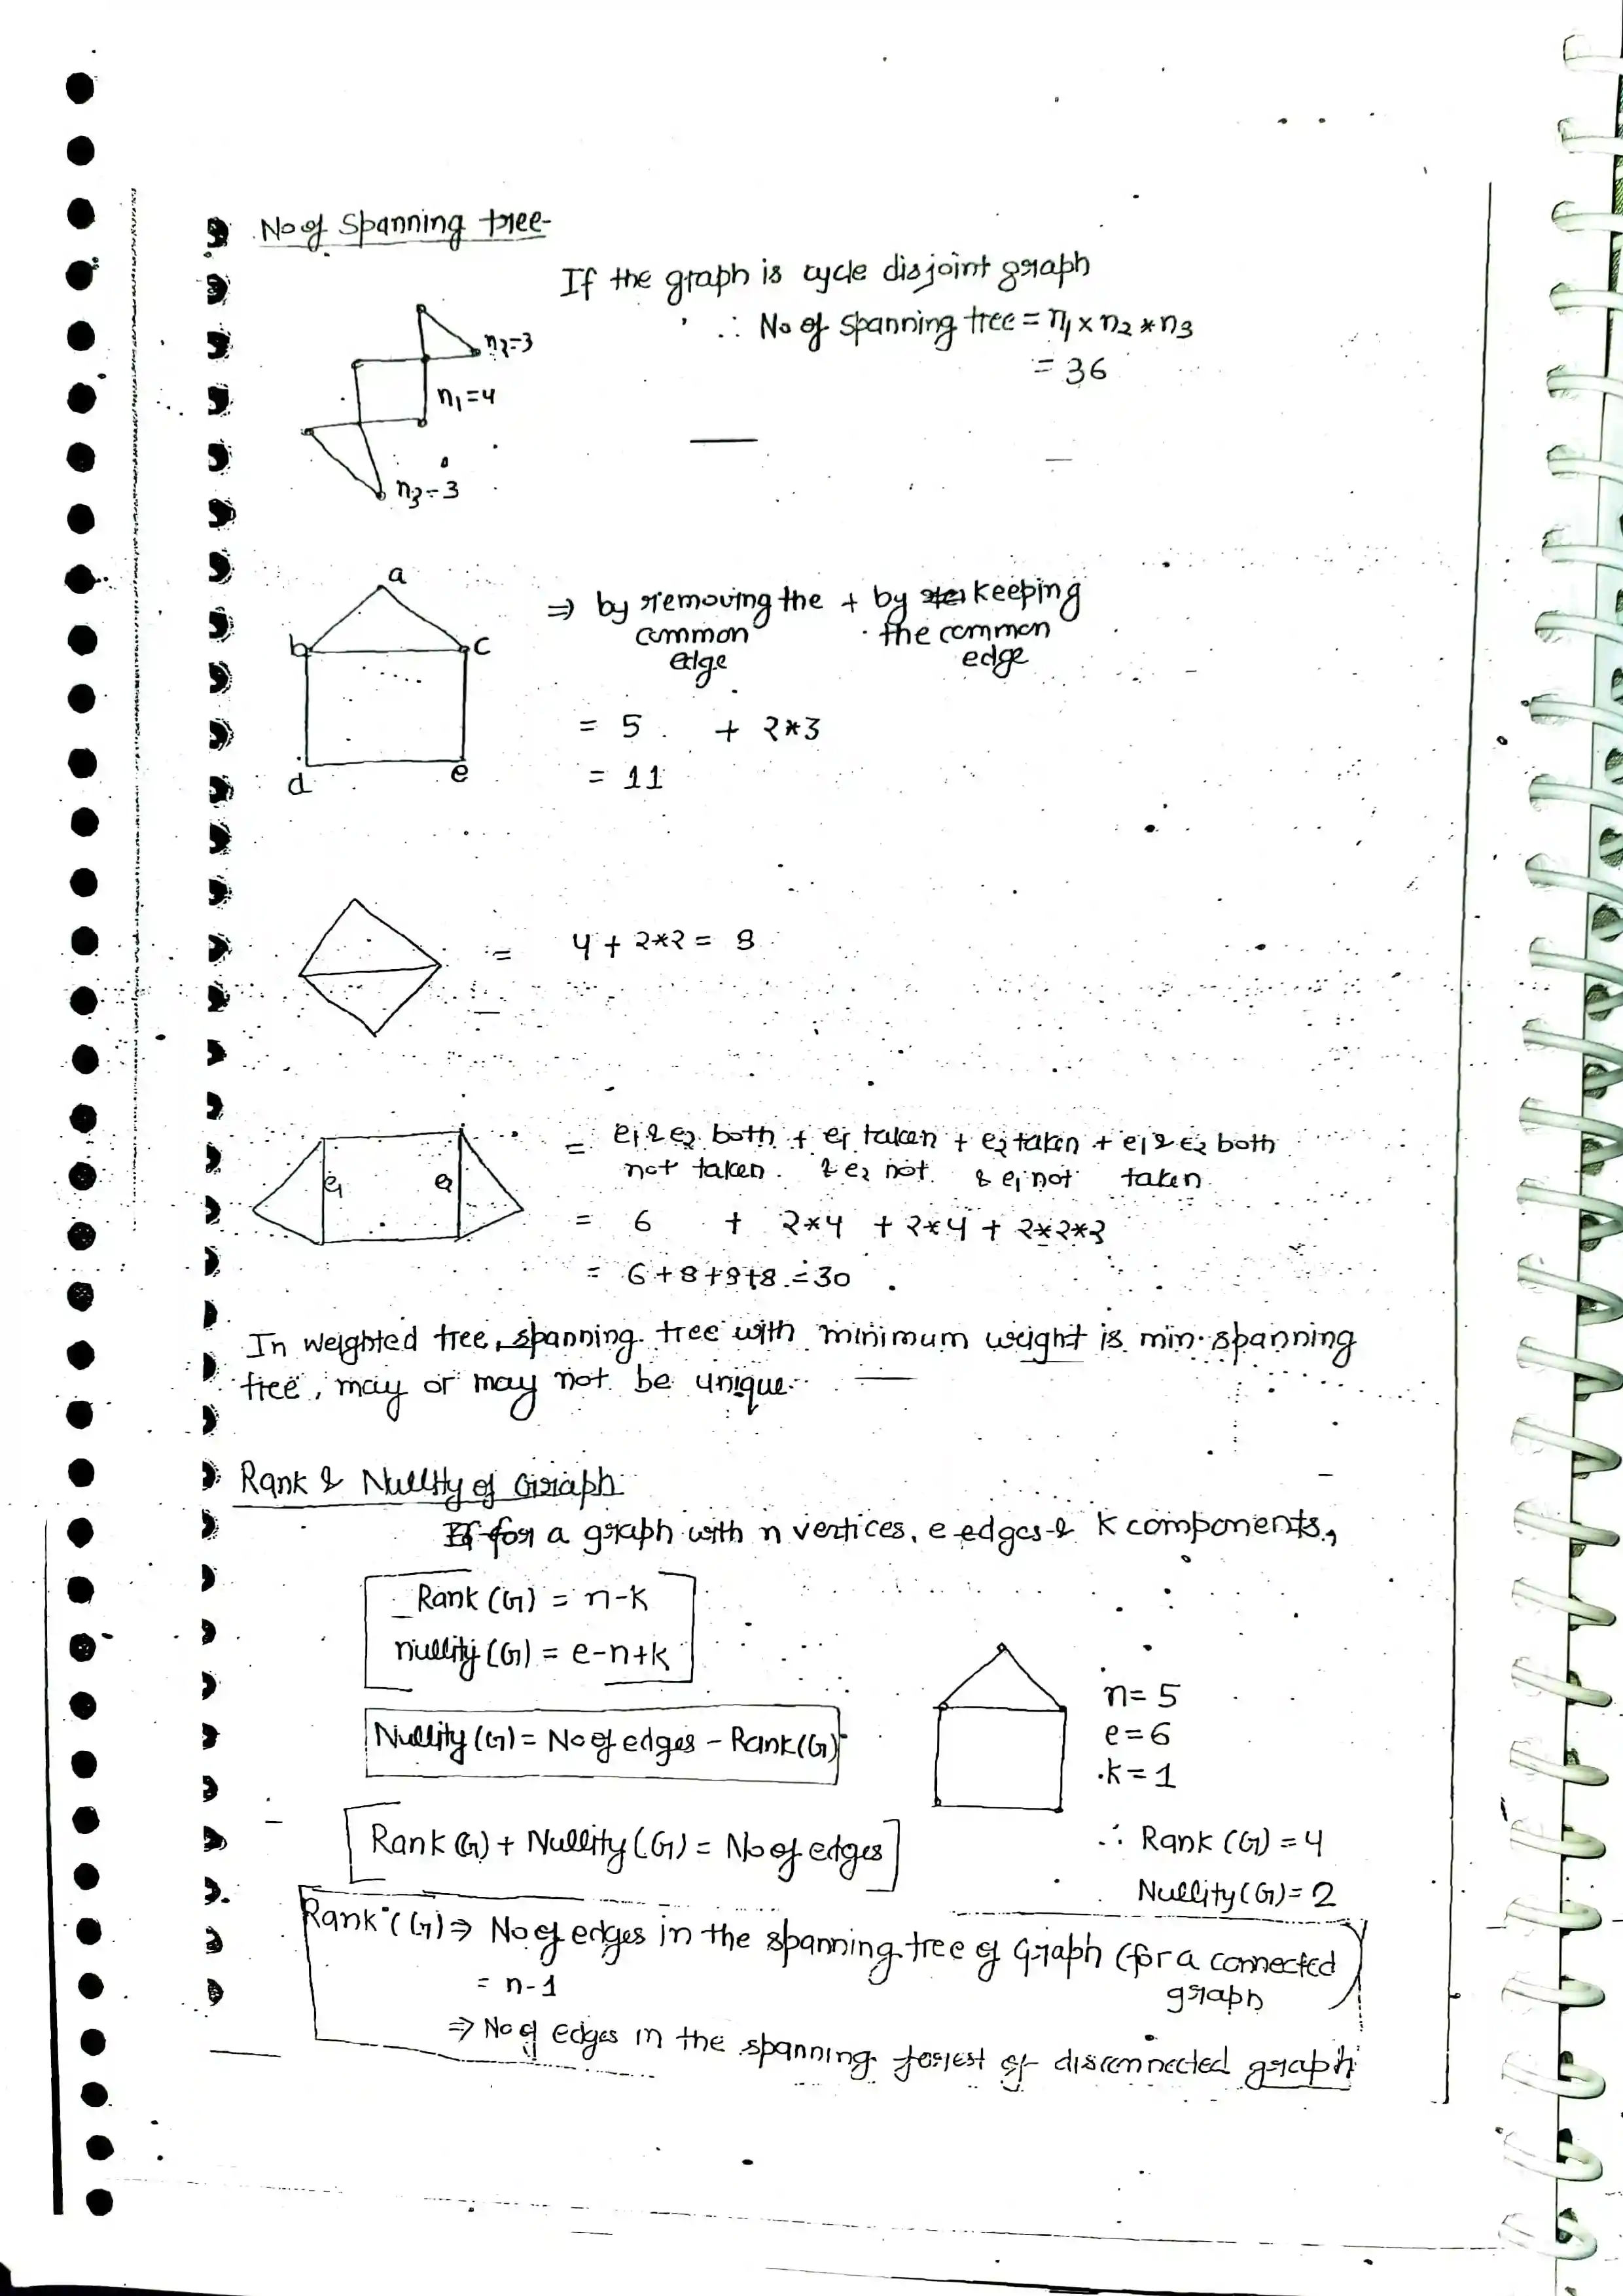 No of Spanning tree-
If the graph is cycle disjoint graph
∴ No of spanning tree = n1 x n2 * n3
= 36
n2=3
n1=4
n3=3
a
b
c
d
e
⇒ by removing the + by keeping
common the common
edge edge
= 5 + 2*3
= 11
= 4 + 2*2 = 8
e1 e2
= e1 & e2 both + e1 taken + e2 taken + e1 & e2 both
not taken. & e2 not. & e1 not taken
= 6 + 2*4 + 2*4 + 2*2*2
= 6+8+8+8 = 30
In weighted tree, spanning tree with minimum weight is min. spanning
tree, may or may not be unique.
Rank & Nullity of Graph
If for a graph with n vertices, e edges & k components,
Rank (G) = n-k
nullity (G) = e-n+k
Nullity (G) = No of edges - Rank(G)
n= 5
e=6
k=1
Rank (G) + Nullity (G) = No of edges
∴ Rank (G) = 4
Nullity (G) = 2
Rank (G) ⇒ No of edges in the spanning tree of Graph (for a connected
graph)
= n-1
⇒ No of edges in the spanning forest of disconnected graph